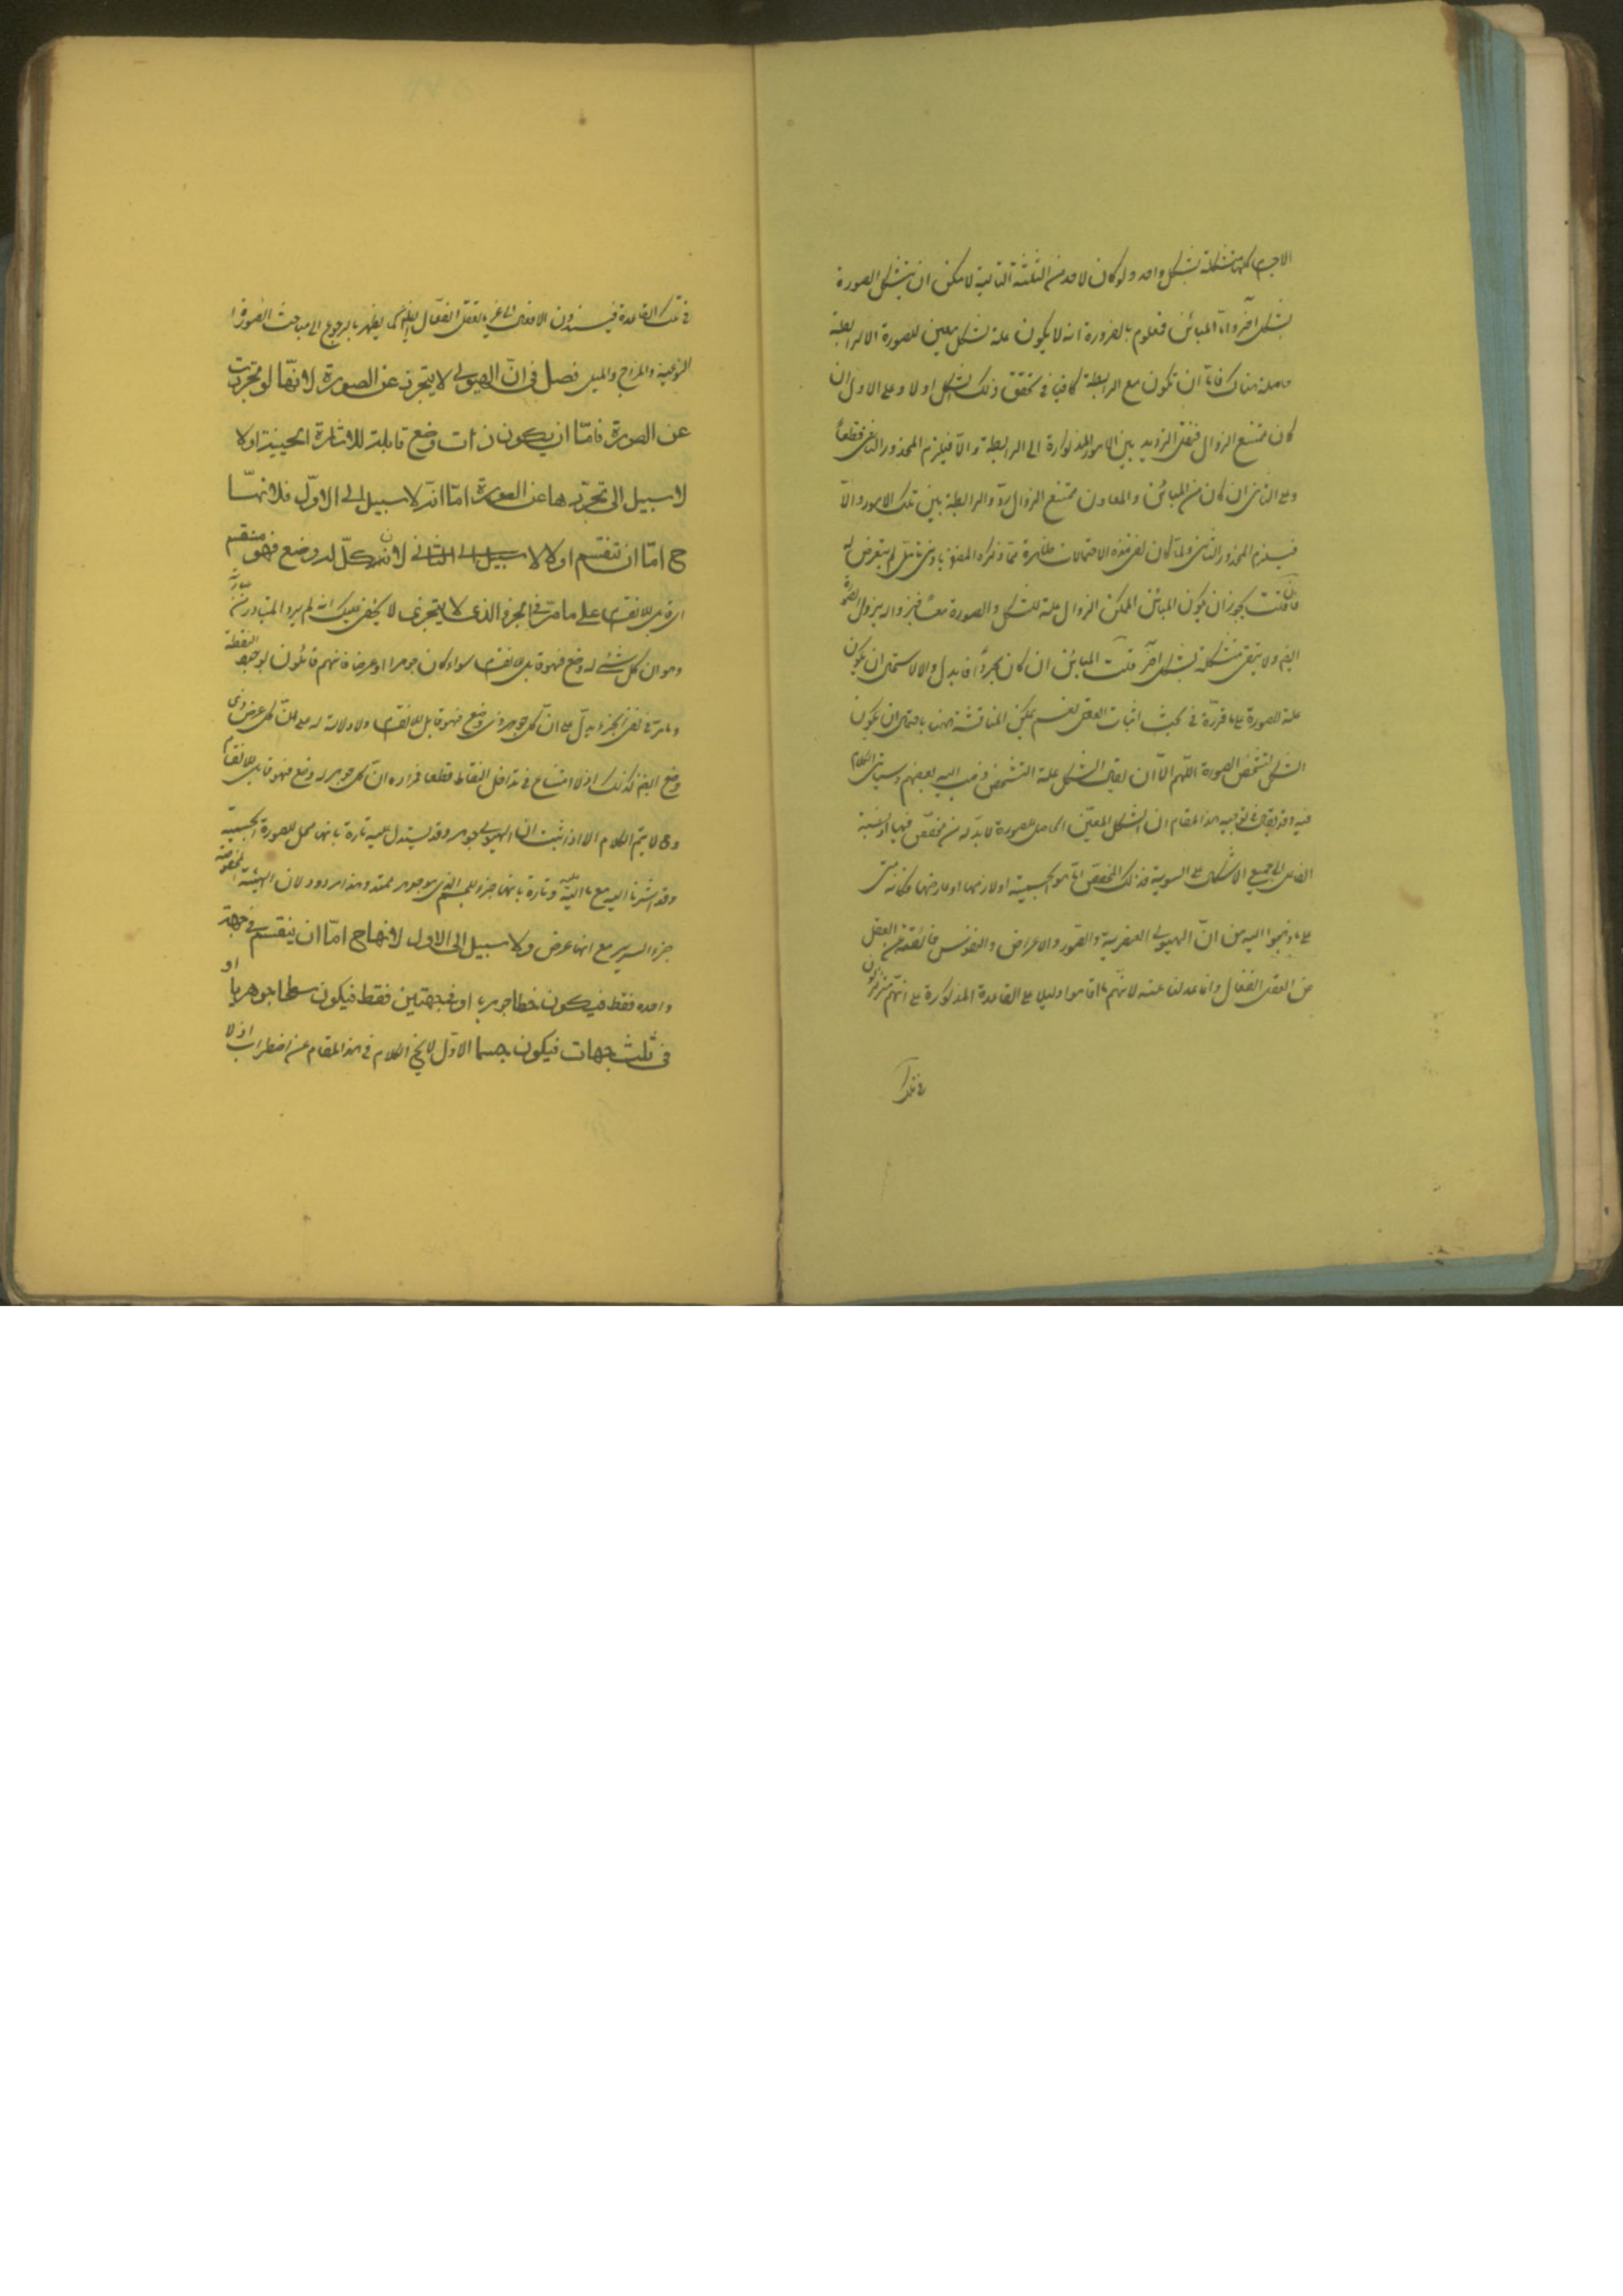 الاجسام كلها متشكلة بشكل واحد ولو كان لاحد من الثلثة التالية لامكن ان يتشكل الصورة
بشكل آخر واما المباين فمعلوم بالضرورة انه لا يكون علة لشكل معين للصورة الا لرابطة
حاصلة هناك فاما ان تكون مع الرابطة كافيا في تحقق ذلك الشكل اولا وعلى الاول ان
كان ممتنع الزوال فننقل الترديد بين الامور المذكورة الى الرابطة والا فيلزم المحذور الثاني قطعا
وعلى الثاني ان كان من المباين والمعاون ممتنع الزوال ردد الرابطة بين تلك الامور والا
فيلزم المحذور الثاني ولما كان نفي هذه الاحتمالات ظاهرة مما ذكره المصنف بادنى تامل لم يتعرض له
فان قلت يجوز ان يكون المباين الممكن الزوال علة للشكل والصورة معا فبزواله يزول الصورة
ايضا ولا تبقى متشكلة بشكل آخر قلت المباين ان كان مجردا فابدي والا لاستحال ان يكون
علة للصورة على ما قرره في بحث اثبات العقل نعم يمكن المناقشة ههنا باحتمال ان يكون
الشكل لتشخص الصورة اللهم الا ان يقال الشكل علة التشخص ذهب اليه بعضهم وسياتي الكلام
فيه وقد يقال في توجيه هذا المقام ان الشكل المعين الحاصل للصورة لا بد له من مخصص فيها اذ نسبة
الفاعل الى جميع الاشكال على السوية فذلك المخصص اما هو الجسمية او لازمها او عارضها وكانه مبنى
على ما ذهبوا اليه من ان الهيولى العنصرية والصور والاعراض والنفوس فائضة عن العقل
من العقل الفعال وانما عدلنا عنه لانهم ما اقاموا دليلا على القاعدة المذكورة على انهم متزلزلون
في تلك
في تلك القاعدة فيسندون الافعال الى غير العقل الفعال ايضا كما يظهر بالرجوع الى مباحث الصورة
النوعية والمزاج والميل فصل في ان الهيولى لا يتجرد عن الصورة لانها لو تجردت
عن الصورة فاما ان يكون ذات وضع قابلة للاشارة الحسية او لا
لا سبيل الى تجردها عن الصورة اما انه لا سبيل الى الاول فلانها
ح اما ان تنقسم او لا لا سبيل الى الثاني لان كل ما له وضع فهو منقسم
اي قابل للانقسام على ما مر في الجزء الذي لا يتجزى لا يخفى عليك انه لم يرد المتبادر من عبارته
وهو ان كل شيء له وضع فهو قابل للانقسام سواء كان جوهرا او عرضا فانهم قائلون بوجود النقطة
وما مر في نفي الجزء يدل على ان كل جوهر ذي وضع فهو قابل للانقسام ولا دلالة له على ان كل عرض ذي
وضع ايضا كذلك اذ لا امتناع في تداخل النقاط قطعا فمراده ان كل جوهر له وضع فهو قابل للانقسام
وح لا يتم الكلام الا اذا ثبت ان الهيولى جوهر وقد يستدل عليه تارة بانها محل للصورة الجسمية
وقد اشرنا اليه مع ما عليه وتارة بانها جزء للجسم الذي هو جوهر ممتد وهذا مردود لان الهيئة المخصوصة
جزء السرير مع انها عرض ولا سبيل الى الاول لانها ح اما ان ينقسم في جهة
واحدة فقط فيكون خطا جوهريا او في جهتين فقط فيكون سطحا جوهريا او
في ثلث جهات فيكون جسما الاول لا يخ الكلام في هذا المقام عن اضطراب اذ لا